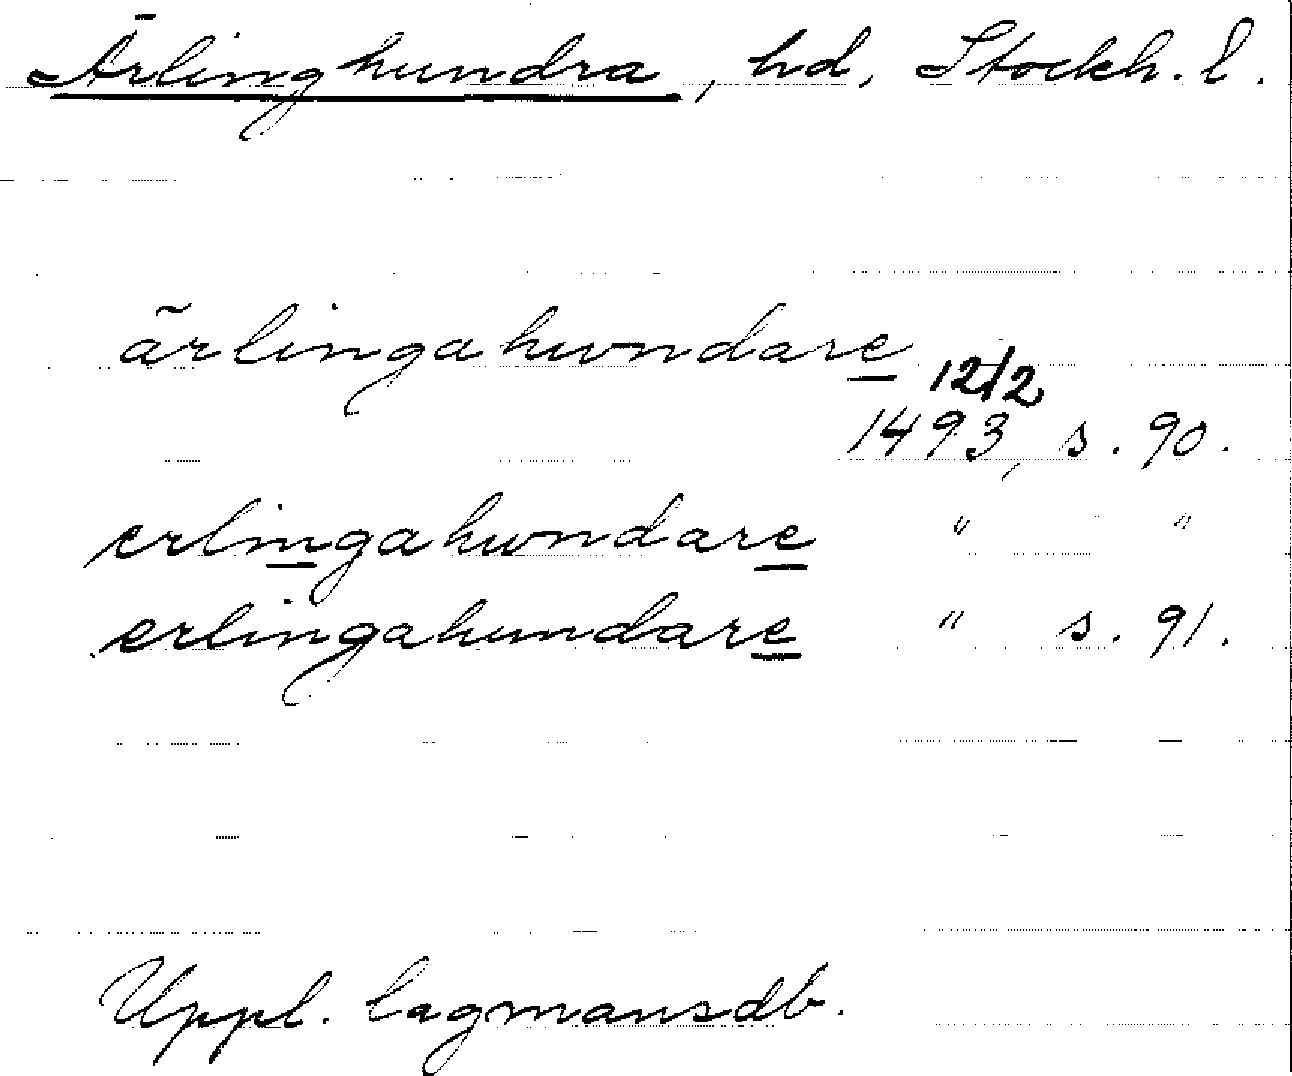 Ärlinghundra, hd, Stockh. l.
ärlingahwndare 12/2
1493, s. 90.
erlingahwndare " "
erlingahundare " s. 91.
Uppl. lagmansdb.